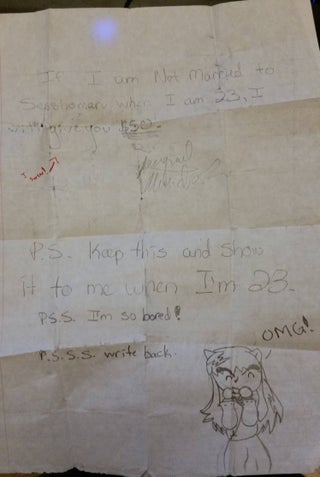 If I am Not Married to
when I am 23, I
will give you $50.
I swear
P.S. Keep this and show
it to me when I'm 23.
P.S.S. I'm so bored!
P.S.S.S. write back.
OMG!